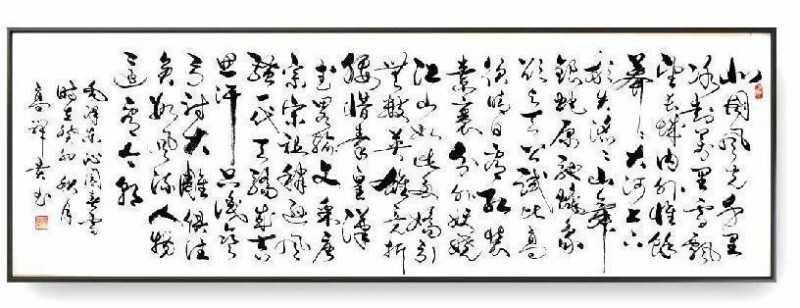 北国风光千里
冰封万里雪飘
望长城内外惟余
莽〻大河上下
顿失滔〻山舞
银蛇原驰蜡象
欲与天公试比高
须晴日看红装
素裹分外妖娆
江山如此多娇引
无数英雄竞折
腰惜秦皇汉
武略输文采唐
宗宋祖稍逊风
骚一代天骄成吉
思汗只识弯
弓射大雕俱往
矣数风流人物
还看今朝
毛泽东沁园春雪
时在癸巳秋月
高祥贵书